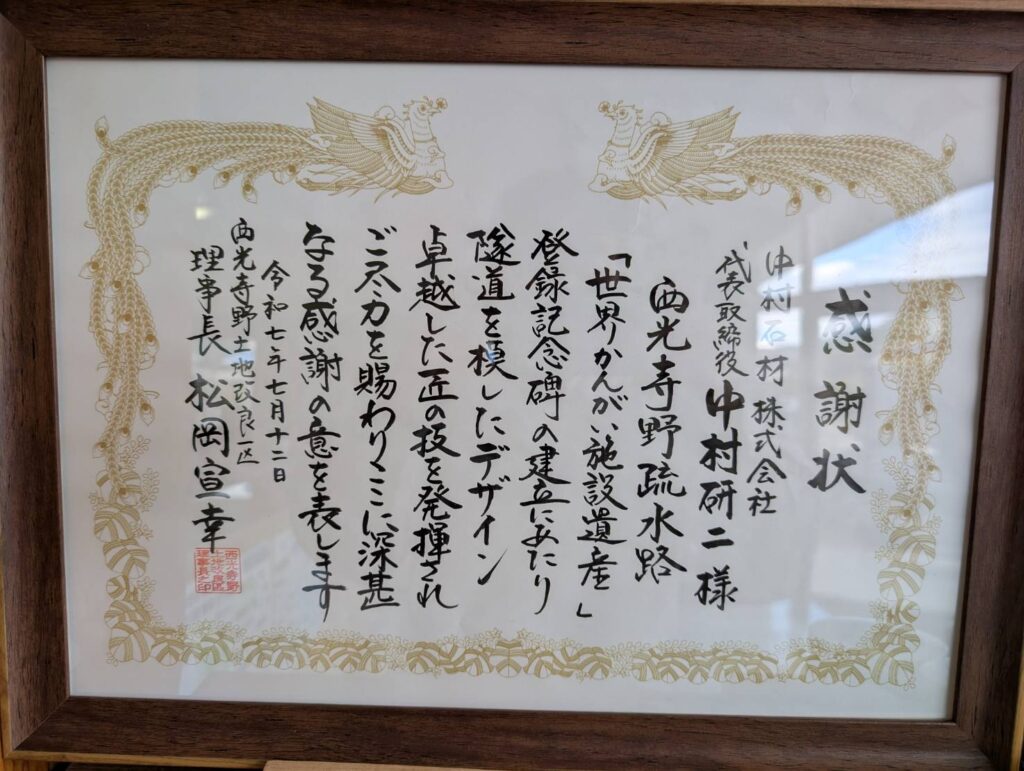 感謝状
中村石材株式会社
代表取締役 中村研二様
西光寺野疏水路
「世界かんがい施設遺産」
登録記念碑の建立にあたり
隧道を模したデザイン
卓越した匠の技を発揮され
ご尽力を賜わりここに深甚
なる感謝の意を表します
令和七年七月十二日
西光寺野土地改良区
理事長 松岡宣幸
西光寺野
土地改良区
理事長之印